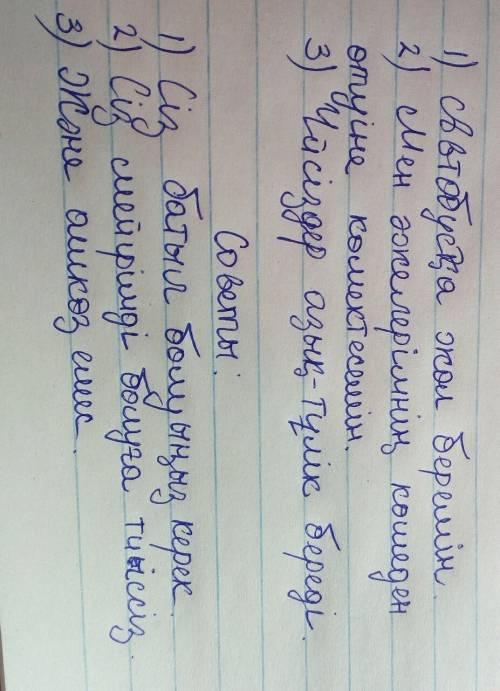 1) Автобусқа жол беремін.
2) Мен әжелерімнің көшеден
өтуіне көмектесемін.
3) Үйсіздер азық-түлік береді.
Советы:
1) Сіз батыл болуыңыз керек.
2) Сіз мейірімді болуға тиіссіз.
3) Және ашкөз емес.